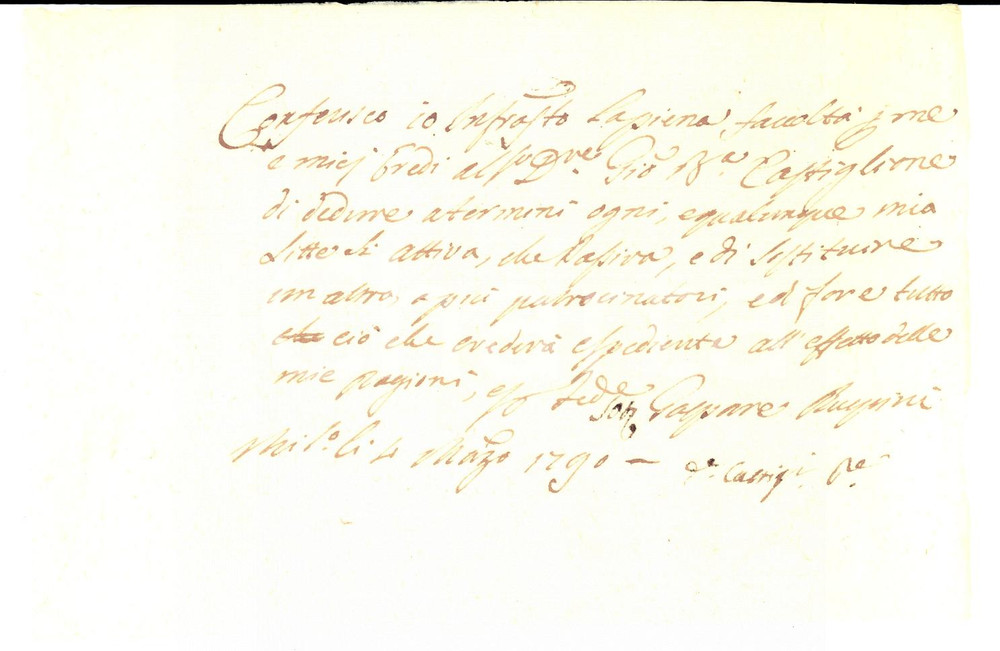 Conferisco io Infrãsto la piena facoltà p me
e miei Eredi al Sr Dre Gio Bta Castiglione
di dedurre a termini ogni, e qualunque mia
Litte sì attiva, che Passiva, e di sostituire
un altro, o più patrocinatori, ed fare tutto
che ciò che crederà espediente all'effetto delle
mie Ragioni, e p fede
Gaspare Ruggini
Milo li 4 Marzo 1790 —